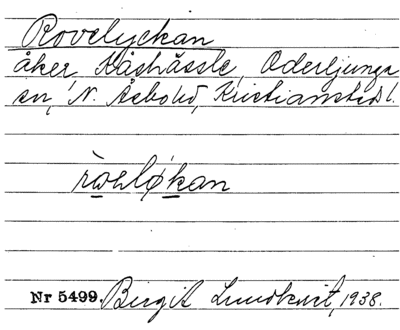 Rovelyckan
åker, Kåshässle, Oderljunga
sn, N. Åsbo hd, Kristianstad l.
Nr 5499. Birgit Lundkvist, 1938.